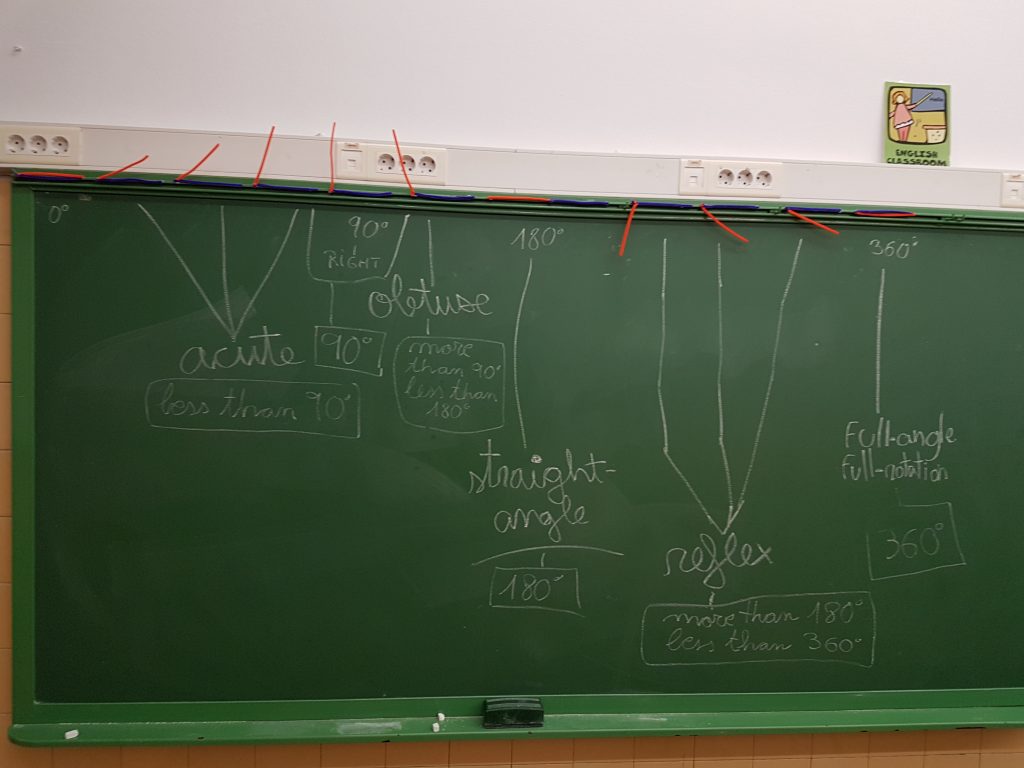 ENGLISH
CLASSROOM
0°
90°
RIGHT
90°
180°
360°
obtuse
more
than 90°
less than
180°
acute
less than 90°
straight-
angle
180°
reflex
more than 180°
less than 360°
Full-angle
Full-rotation
360°